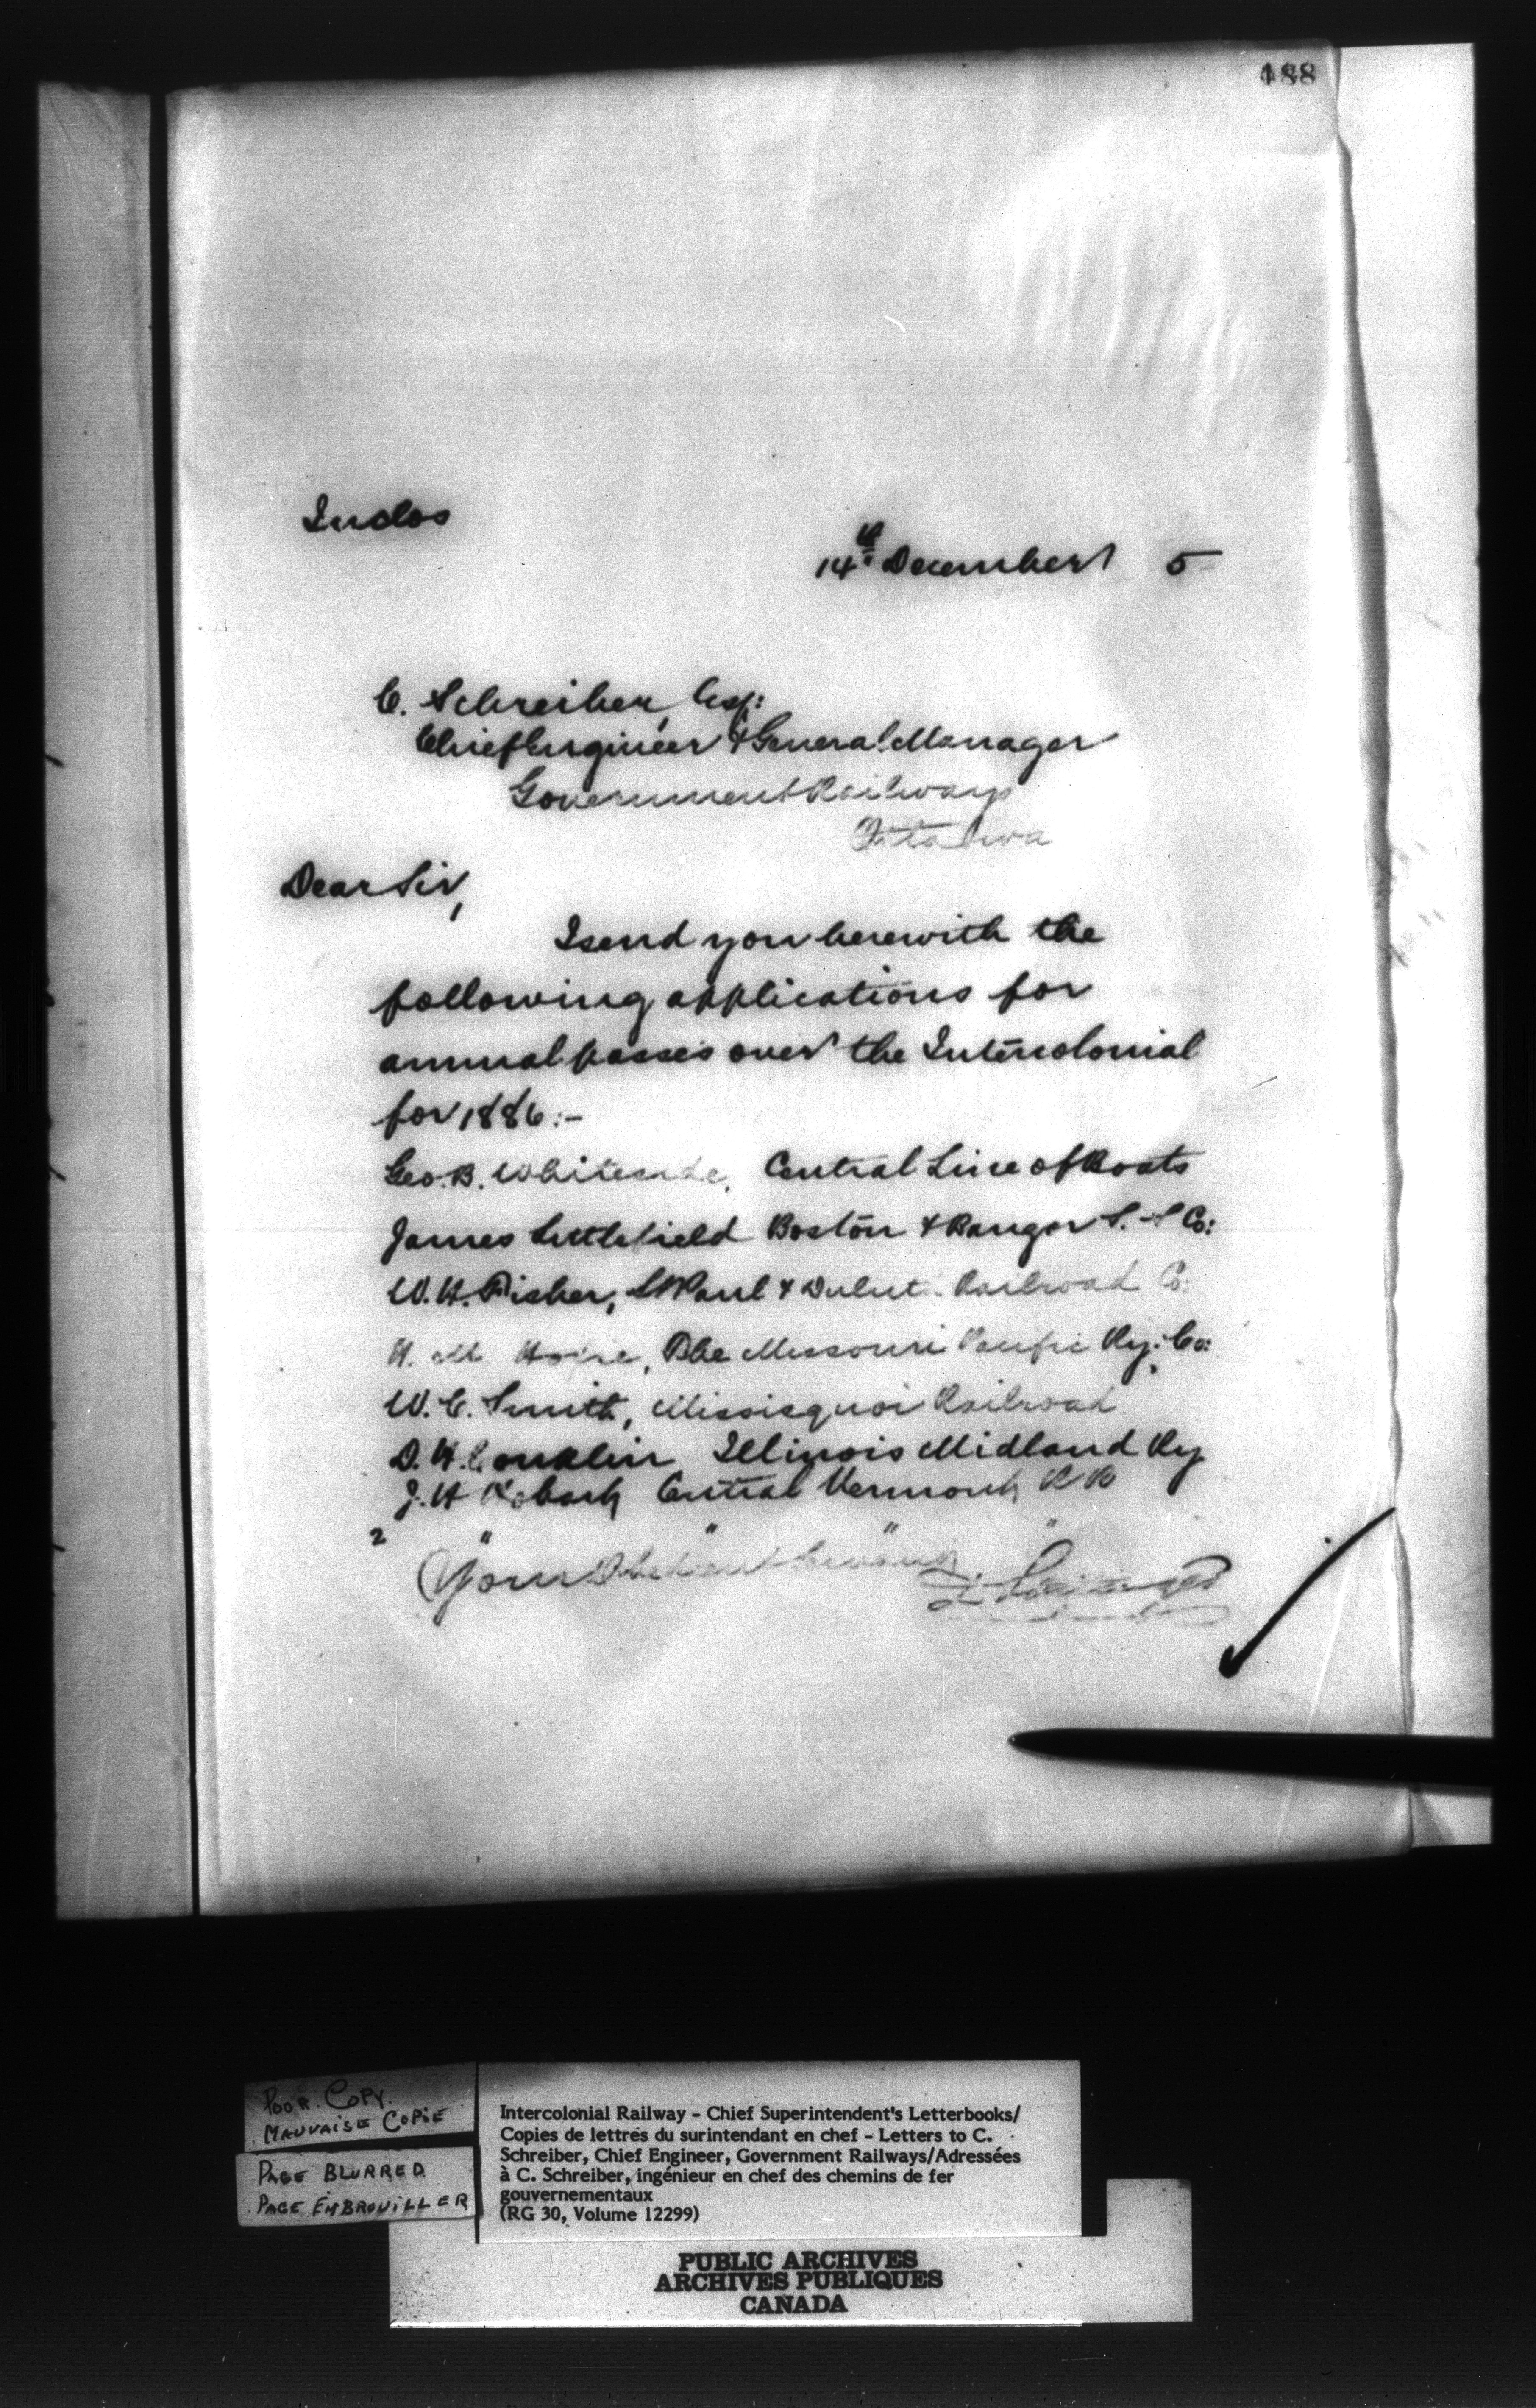 188
Inclos
14th December 5
C. Schreiber, Esq:
Chief Engineer & General Manager
Government Railways
Ottawa
Dear Sir,
I send you herewith the
following applications for
annual passes over the Intercolonial
for 1886:-
Geo. B. Whiteside, Central Line of Boats
James Littlefield Boston & Bangor S.-S Co:
W. H. Fisher, St Paul & Duluth Railroad Co:
H. M. The Missouri Pacific Ry. Co:
W. C. Smith, Missisquoi Railroad
D. H. Conklin Illinois Midland Ry
J. W Hobart Central Vermont R R
2 " " " "
Your Obedient Servant
D. Pottinger
Poor Copy.
Mauvaise Copie
Page Blurred
Page Embrouiller
Intercolonial Railway - Chief Superintendent's Letterbooks/
Copies de lettres du surintendant en chef - Letters to C.
Schreiber, Chief Engineer, Government Railways/Adressées
à C. Schreiber, ingénieur en chef des chemins de fer
gouvernementaux
(RG 30, Volume 12299)
PUBLIC ARCHIVES
ARCHIVES PUBLIQUES
CANADA